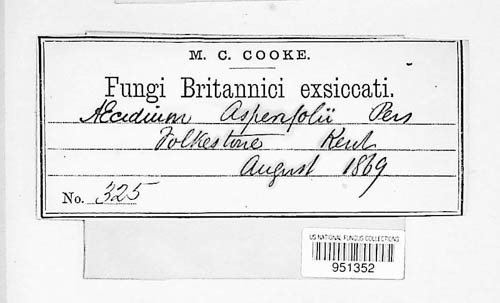 M. C. COOKE.
Fungi Britannici exsiccati.
Æcidium Asperifolii Pers
Folkestone Kent
August 1869
No. 325
US NATIONAL FUNGUS COLLECTIONS
951352